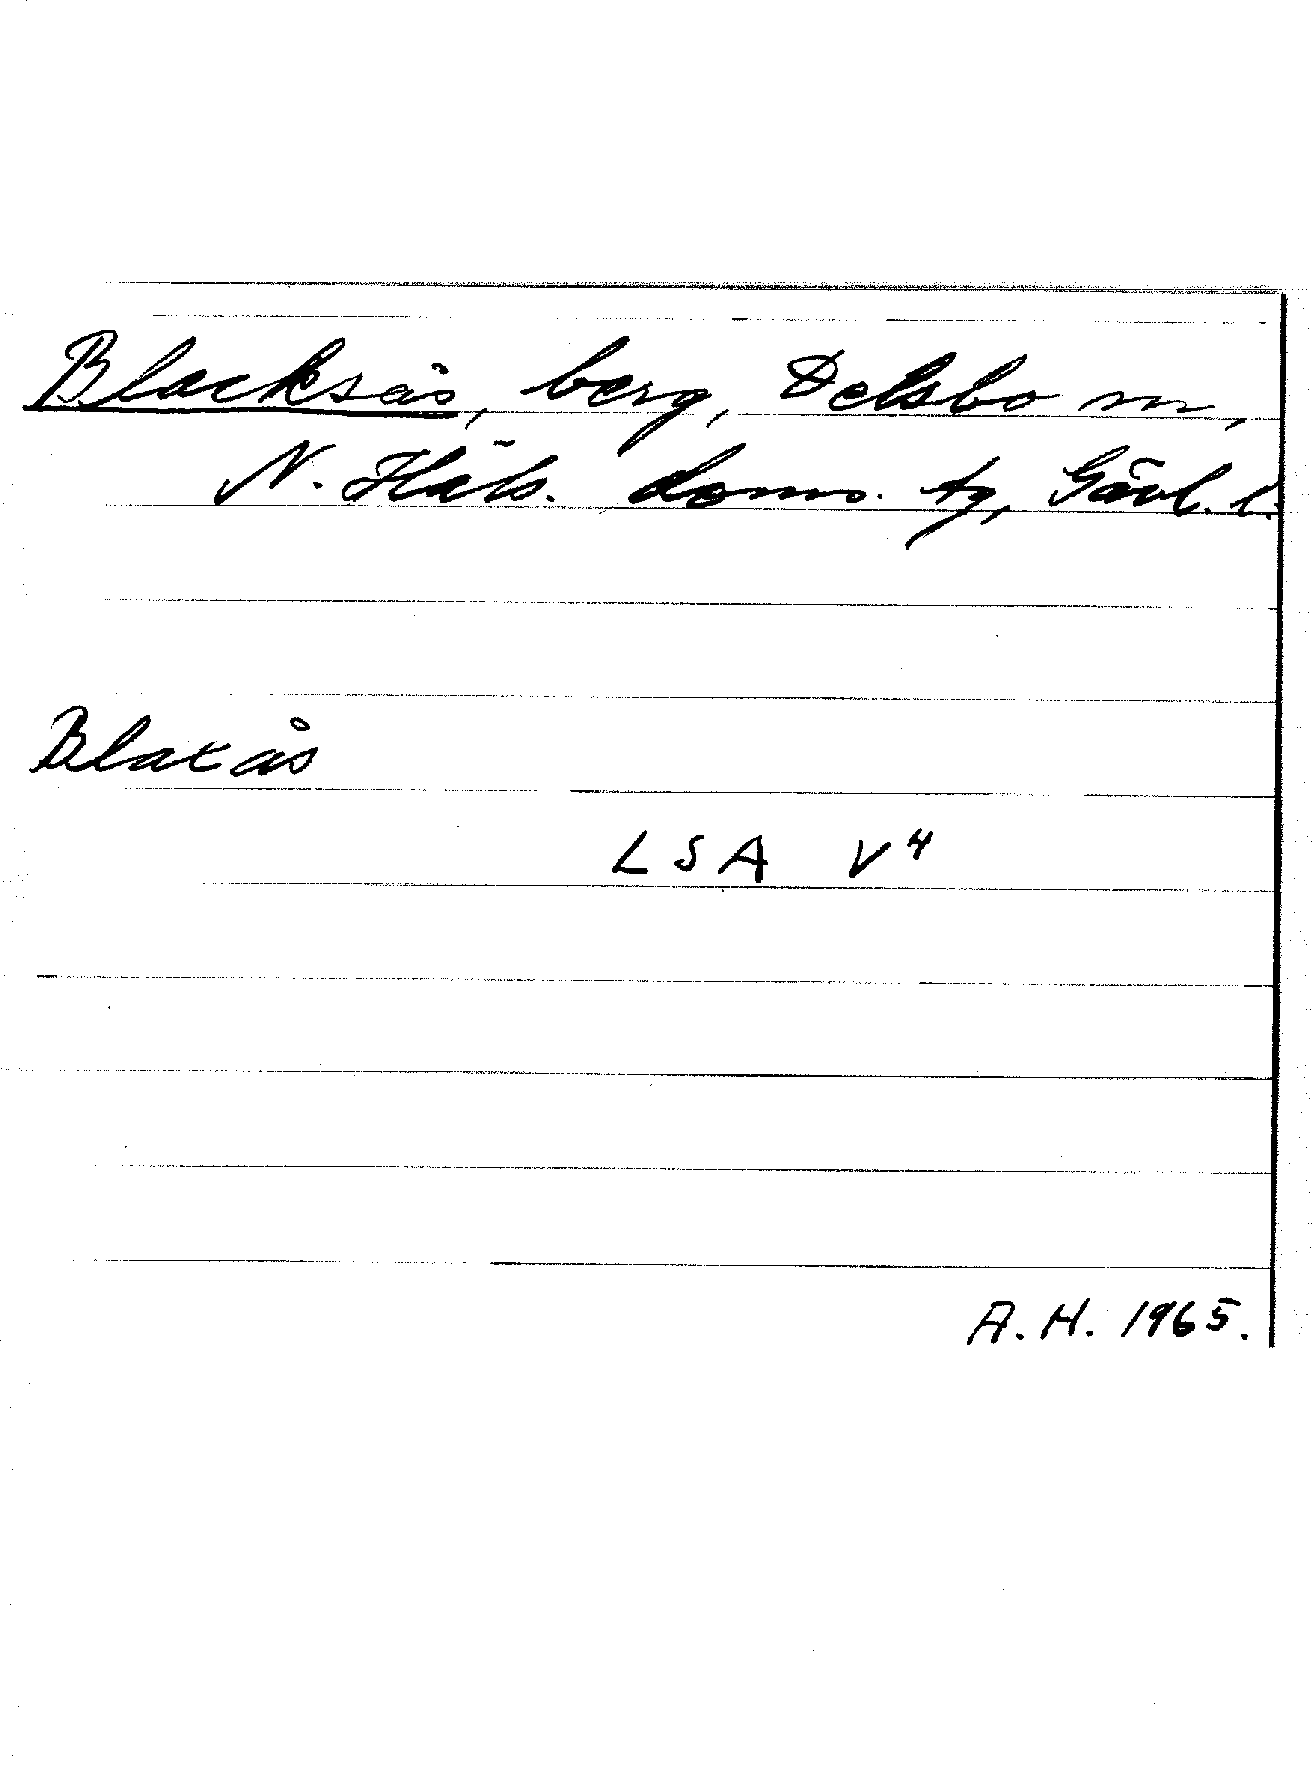 Blacksås, berg, Delsbo sn,
N. Häls. doms. tg, Gävl. l.
Blaxås
LSA V⁴
A. H. 1965.